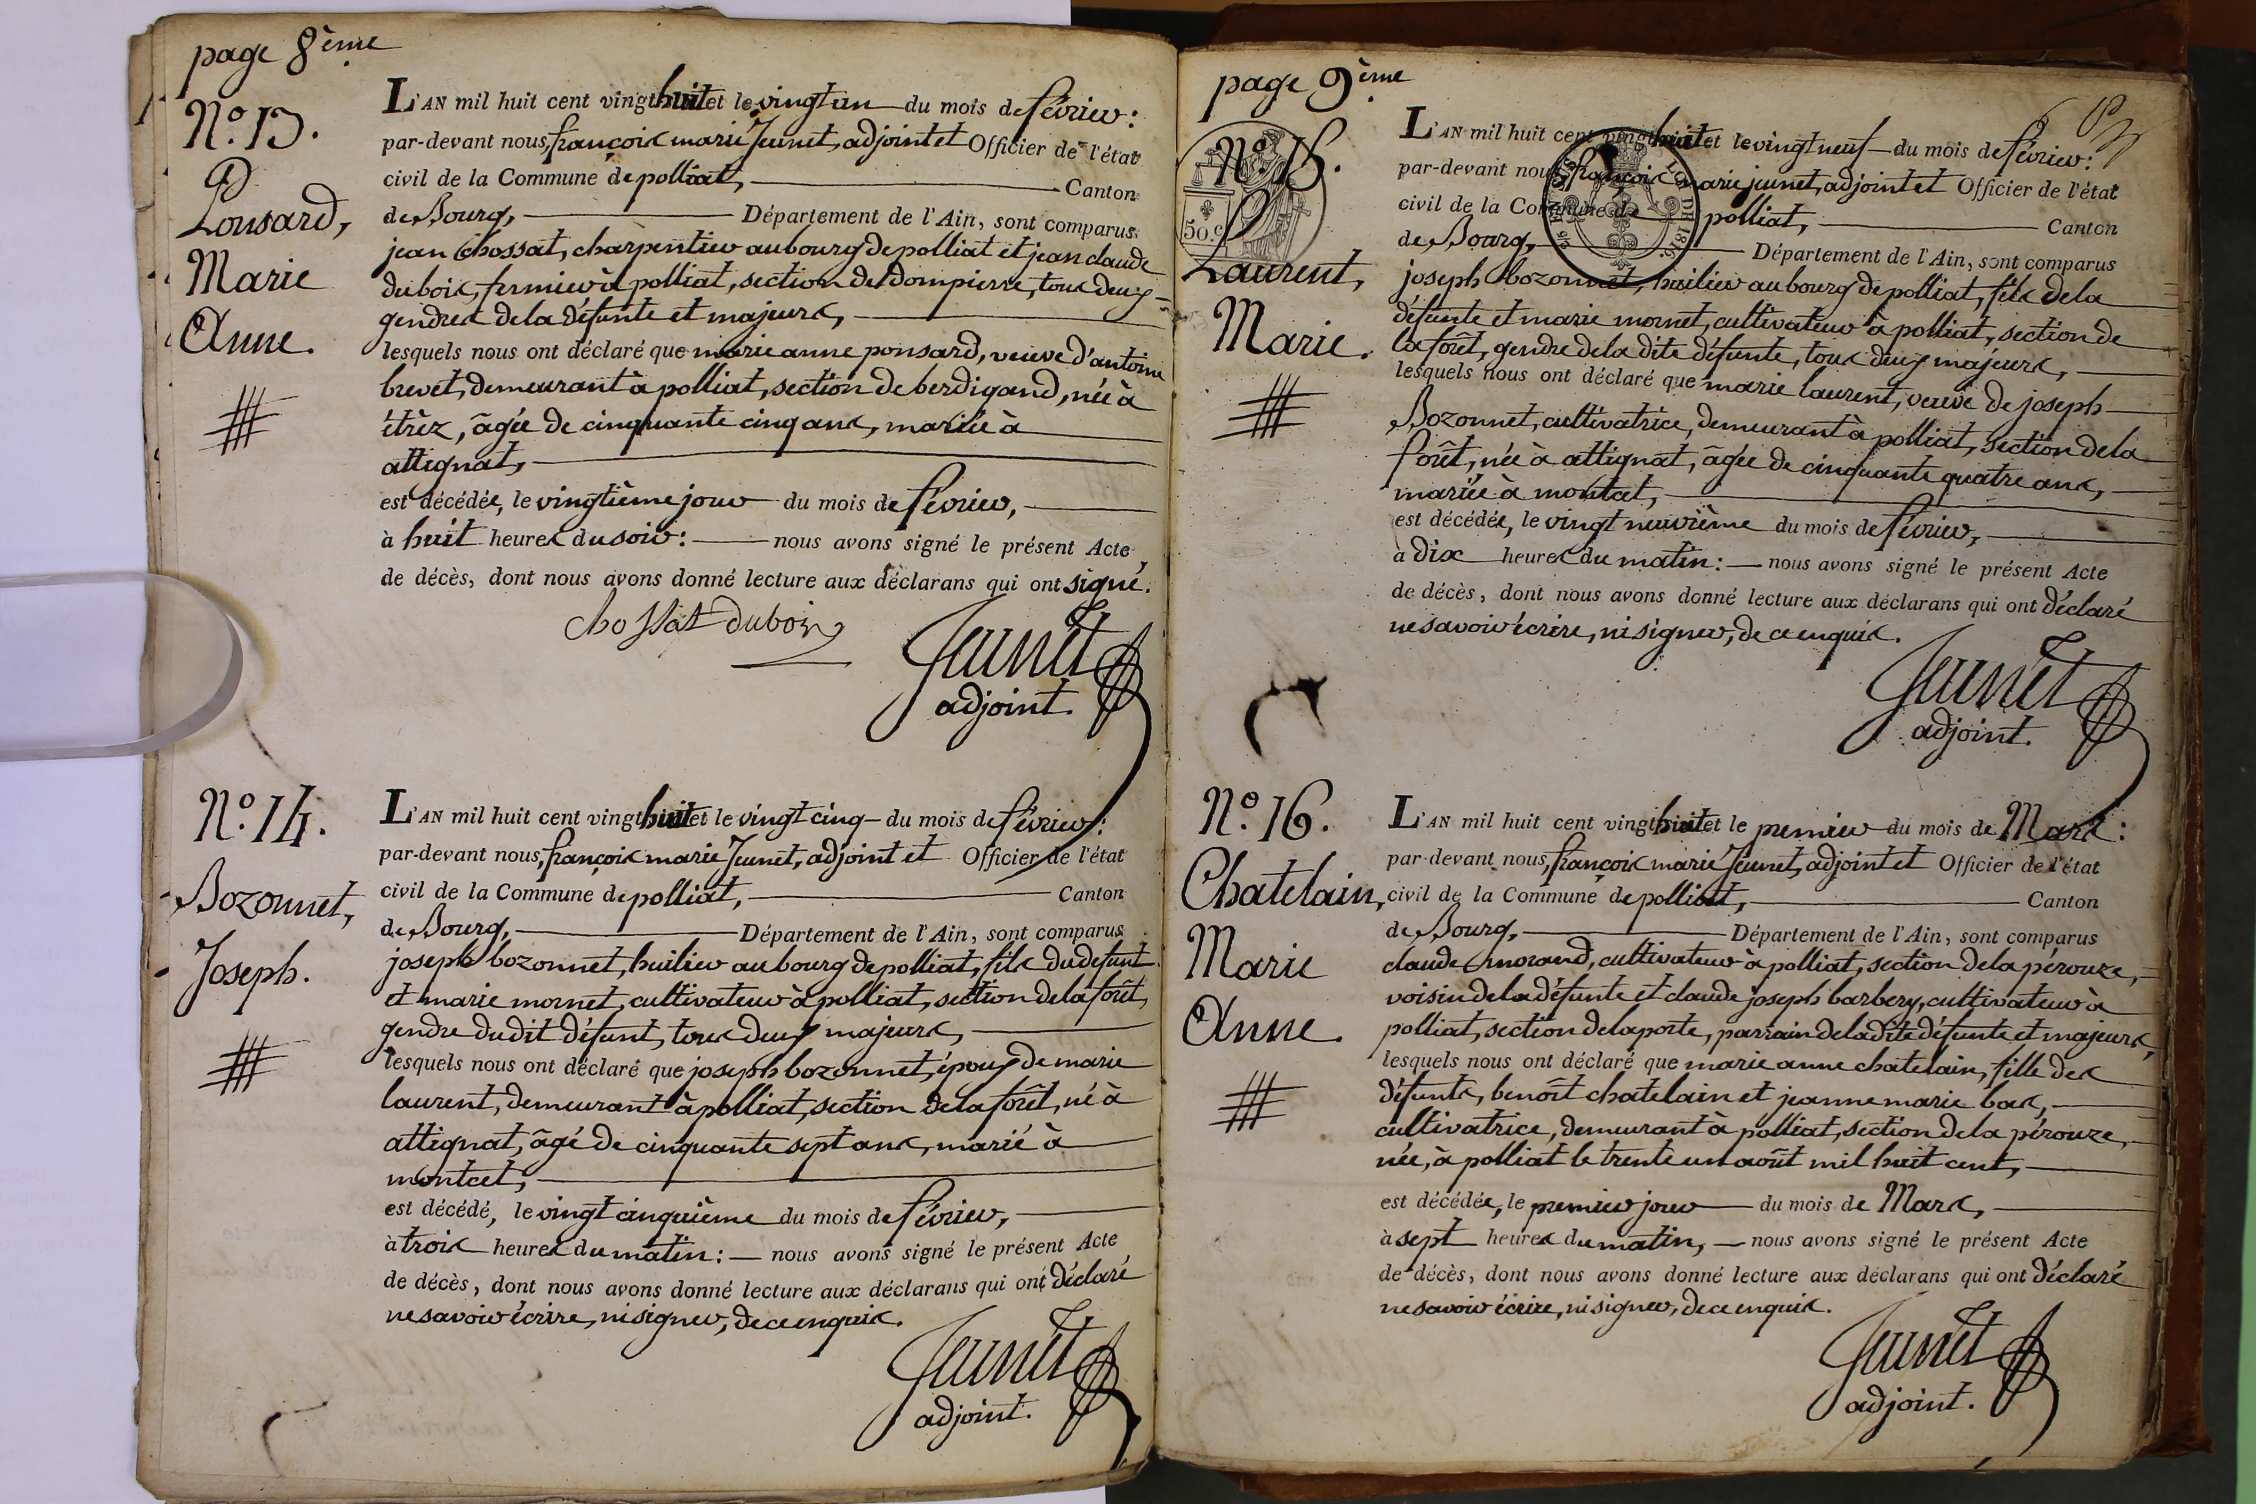 page 8ème
N.° 13.
Ponsard,
Marie
Anne.
L'AN mil huit cent vingt huit et le vingt un du mois de février :
par-devant nous, françois marie Jeunet, adjoint et Officier de l'état
civil de la Commune de polliat, Canton
de Bourg, Département de l'Ain, sont comparus
jean Chossat, charpentier au bourg de polliat et jean claude
dubois, fermier à polliat, section de dompierre, tous deux
gendres de la défunte et majeurs,
lesquels nous ont déclaré que marie anne ponsard, veuve d'antoine
brevet, demeurant à polliat, section de berdigand, née à
étrèz, âgée de cinquante cinq ans, mariée à
attignat,
est décédée, le vingtième jour du mois de février,
à huit heures du soir : nous avons signé le présent Acte
de décès, dont nous avons donné lecture aux déclarans qui ont signé.
chossat dubois
Jeunet
adjoint.
N.° 14.
Bozonnet,
Joseph.
L'AN mil huit cent vingt huit et le vingt cinq du mois de février :
par-devant nous, françois marie Jeunet, adjoint et Officier de l'état
civil de la Commune de polliat, Canton
de Bourg, Département de l'Ain, sont comparus
joseph bozonnet, huilier au bourg de polliat, fils du defunt
et marie mornet, cultivateur à polliat, section de la forêt,
gendre du dit défunt, tous deux majeurs,
lesquels nous ont déclaré que joseph bozonnet, époux de marie
laurent, demeurant à polliat, section de la forêt, né à
attignat, âgé de cinquante sept ans, marié à
montcet,
est décédé, le vingt cinquième du mois de février,
à trois heures du matin : nous avons signé le présent Acte
de décès, dont nous avons donné lecture aux déclarans qui ont déclaré
ne savoir écrire, ni signer, de ce enquis.
Jeunet
adjoint.
page 9ème
N.° 15.
50.c
Laurent,
Marie.
L'AN mil huit cent vingt huit et le vingt neuf du mois de février :
par-devant nous, françois marie jeunet, adjoint et Officier de l'état
civil de la Commune de polliat, Canton
de Bourg, Département de l'Ain, sont comparus
joseph bozonnet, huilier au bourg de polliat, fils de la
défunte et marie mornet, cultivateur à polliat, section de
la forêt, gendre de la dite défunte, tous deux majeurs,
lesquels nous ont déclaré que marie laurent, veuve de joseph
Bozonnet, cultivatrice, demeurant à polliat, section de la
forêt, née à attignat, âgée de cinquante quatre ans,
mariée à montcet,
est décédée, le vingt neuvième du mois de février,
à dix heures du matin : nous avons signé le présent Acte
de décès, dont nous avons donné lecture aux déclarans qui ont déclaré
ne savoir écrire, ni signer, de ce enquis.
Jeunet
adjoint.
N.° 16.
Chatelain,
Marie
Anne.
L'AN mil huit cent vingt huit et le premier du mois de Mars :
par-devant nous, françois marie Jeunet, adjoint et Officier de l'état
civil de la Commune de polliat, Canton
de Bourg, Département de l'Ain, sont comparus
claude morand, cultivateur à polliat, section de la pérouze,
voisin de la défunte et claude joseph barbery, cultivateur à
polliat, section de la porte, parrain de la dite défunte et majeurs,
lesquels nous ont déclaré que marie anne chatelain, fille des
défunts, benoît chatelain et jeanne marie bas,
cultivatrice, demeurant à polliat, section de la pérouze,
née, à polliat le trente un août mil huit cent,
est décédée, le premier jour du mois de Mars,
à sept heures du matin, nous avons signé le présent Acte
de décès, dont nous avons donné lecture aux déclarans qui ont déclaré
ne savoir écrire, ni signer, de ce enquis.
Jeunet
adjoint.